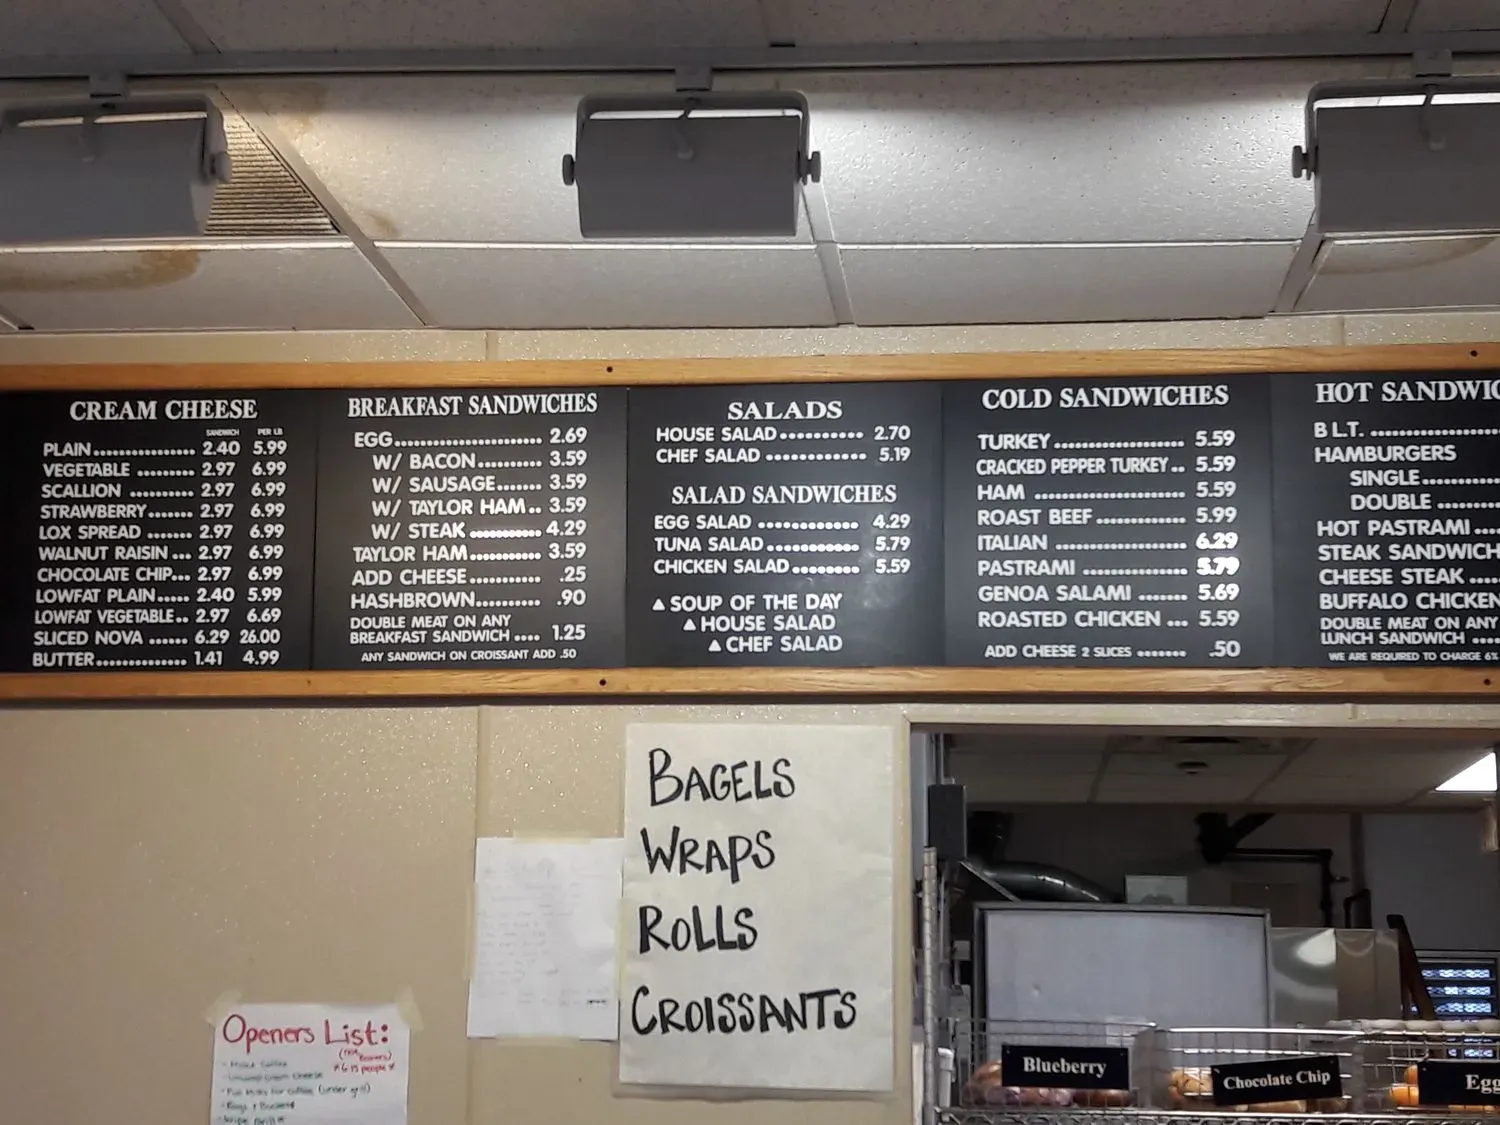 CREAM CHEESE
SANDWICH PER LB
PLAIN 2.40 5.99
VEGETABLE 2.97 6.99
SCALLION 2.97 6.99
STRAWBERRY 2.97 6.99
LOX SPREAD 2.97 6.99
WALNUT RAISIN 2.97 6.99
CHOCOLATE CHIP 2.97 6.99
LOWFAT PLAIN 2.40 5.99
LOWFAT VEGETABLE 2.97 6.69
SLICED NOVA 6.29 26.00
BUTTER 1.41 4.99
BREAKFAST SANDWICHES
EGG 2.69
W/ BACON 3.59
W/ SAUSAGE 3.59
W/ TAYLOR HAM 3.59
W/ STEAK 4.29
TAYLOR HAM 3.59
ADD CHEESE .25
HASHBROWN .90
DOUBLE MEAT ON ANY
BREAKFAST SANDWICH 1.25
ANY SANDWICH ON CROISSANT ADD .50
SALADS
HOUSE SALAD 2.70
CHEF SALAD 5.19
SALAD SANDWICHES
EGG SALAD 4.29
TUNA SALAD 5.79
CHICKEN SALAD 5.59
SOUP OF THE DAY
HOUSE SALAD
CHEF SALAD
COLD SANDWICHES
TURKEY 5.59
CRACKED PEPPER TURKEY 5.59
HAM 5.59
ROAST BEEF 5.99
ITALIAN 6.29
PASTRAMI 5.79
GENOA SALAMI 5.69
ROASTED CHICKEN 5.59
ADD CHEESE 2 SLICES .50
HOT SANDWIC
B L.T.
HAMBURGERS
SINGLE
DOUBLE
HOT PASTRAMI
STEAK SANDWICH
CHEESE STEAK
BUFFALO CHICKEN
DOUBLE MEAT ON ANY
LUNCH SANDWICH
WE ARE REQUIRED TO CHARGE 6%
BAGELS
WRAPS
ROLLS
CROISSANTS
Openers List:
- Make Coffee
(under grill)
Blueberry
Chocolate Chip
Egg